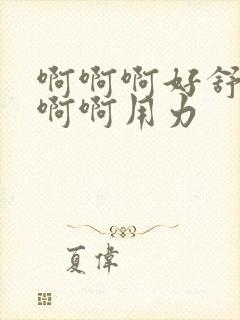 啊啊啊好舒
啊啊用力
夏偉